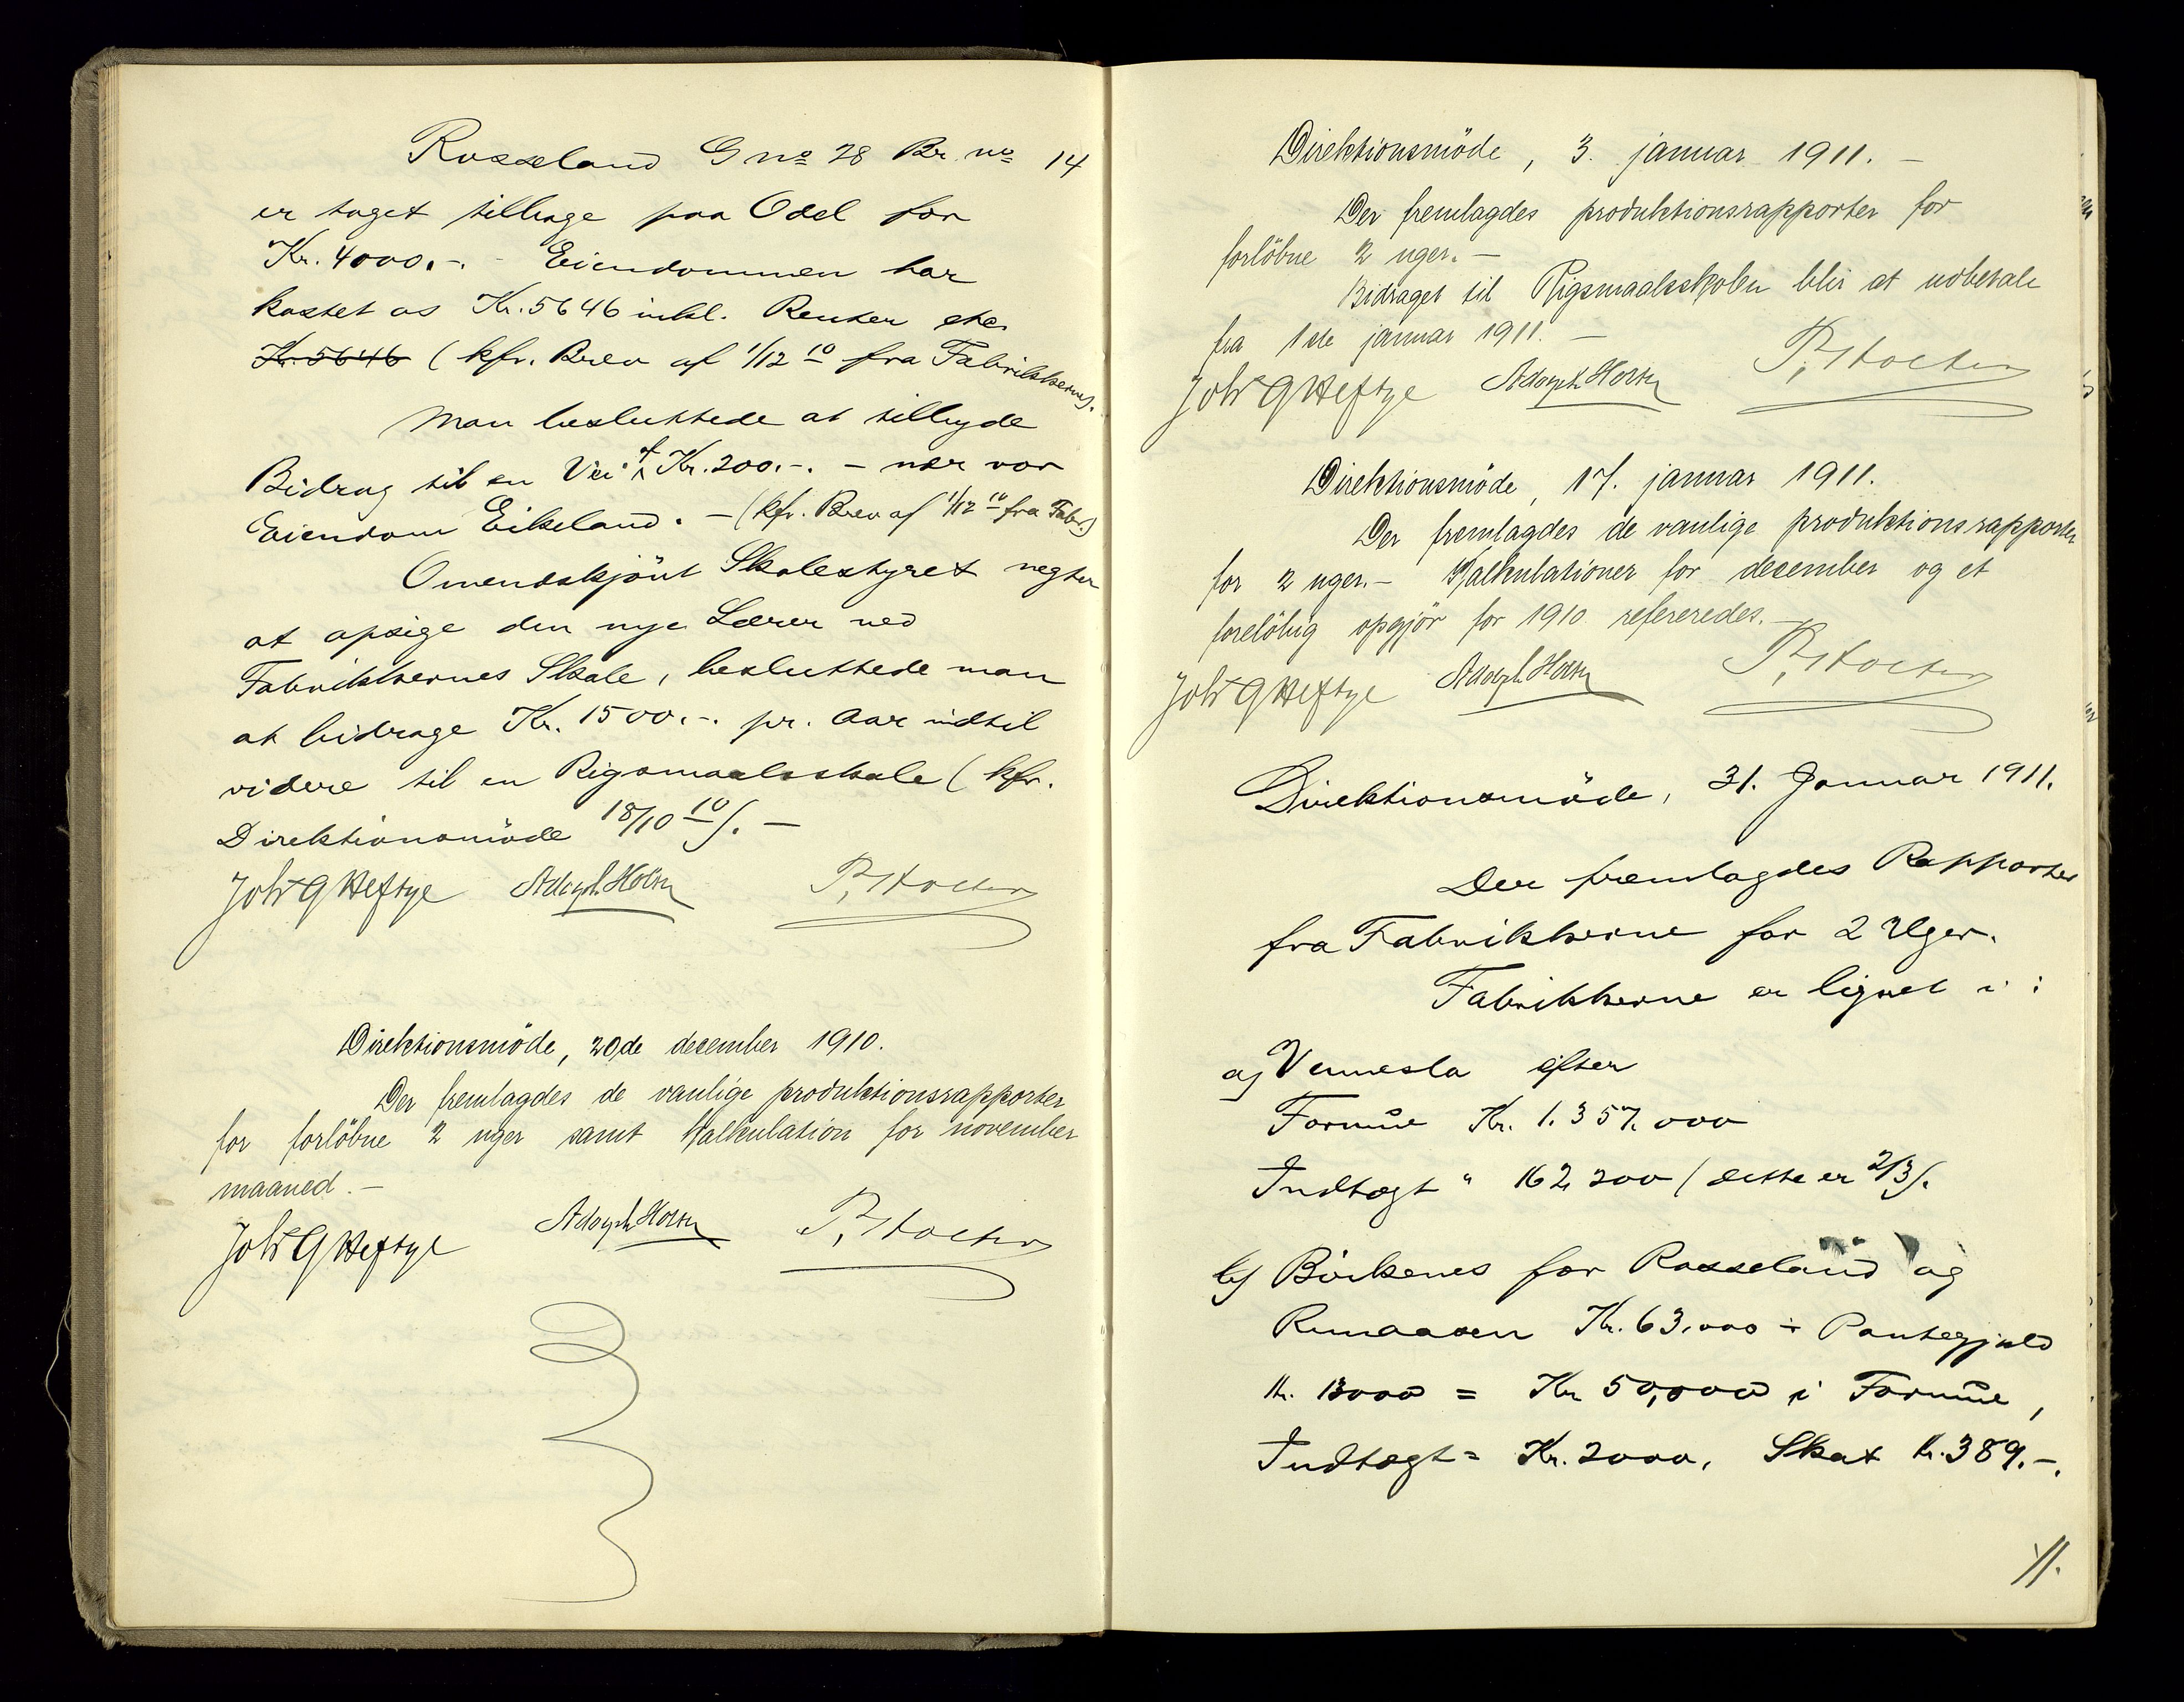 Rosseland G no 28 Br. no 14
er taget tilbage paa Odel for
Kr. 4000.-. - Eiendommen har
kostet os Kr. 5646 inkl. Renter etc.
Kr. 5646 (kfr. Brev af 1/12 10 fra Fabrikkerne).
Man besluttede at tilbyde
Bidrag til en Vei af Kr. 200.-. - nær vor
Eiendom Eikeland. - (kfr. Brev af 1/12 10 fra Fabr.)
Omendskjönt Skolestyret negter
at opsige den nye Lærer ved
Fabrikkernes Skole, besluttede man
at bidrage Kr. 1500.-. pr. Aar indtil
videre til en Rigsmaalsskole (kfr.
Direktionsmöde 18/10 10). -
Joh G Heftye Adolph Holtn
Direktionsmöde, 20de december 1910.
Der fremlagdes de vanlige produktionsrapporter
for forlöbne 2 uger samt Kalkulation for november
maaned. -
Joh G Heftye Adolph Holtn
Direktionsmöde, 3. januar 1911. -
Der fremlagdes produktionsrapporter for
forlöbne 2 uger. -
Bidraget til Rigsmaalsskolen blir at udbetale
fra 1ste januar 1911. -
Joh G Heftye Adolph Holtn
Direktionsmöde, 17. januar 1911.
Der fremlagdes de vanlige produktionsrapporter
for 2 uger. - Kalkulationer for december og et
forelöbig opgjör for 1910 refereredes. -
Joh G Heftye Adolph Holtn
Direktionsmöde, 31. Januar 1911.
Der fremlagdes Rapporter
fra Fabrikkerne for 2 Uger.
Fabrikkerne er lignet i :
a) Vennesla efter
Formue Kr. 1.357.000
Indtægt " 162 200 (dette er 2/3).
b) Birkenes for Rosseland og
Rumaasen Kr. 63.000 ÷ Pantegjæld
Kr. 13000 = Kr 50,000 i Formue,
Indtægt = Kr. 2000, Skat Kr. 389.-.